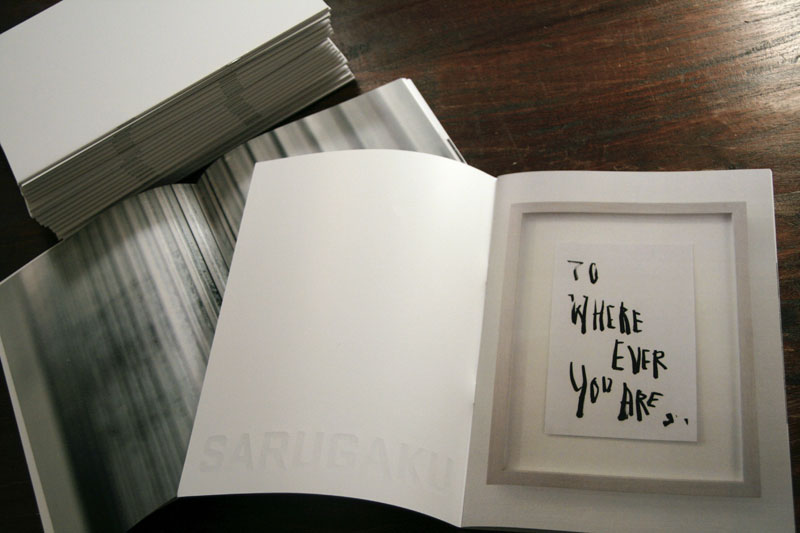 SARUGAKU
TO
WHERE
EVER
YOU ARE...